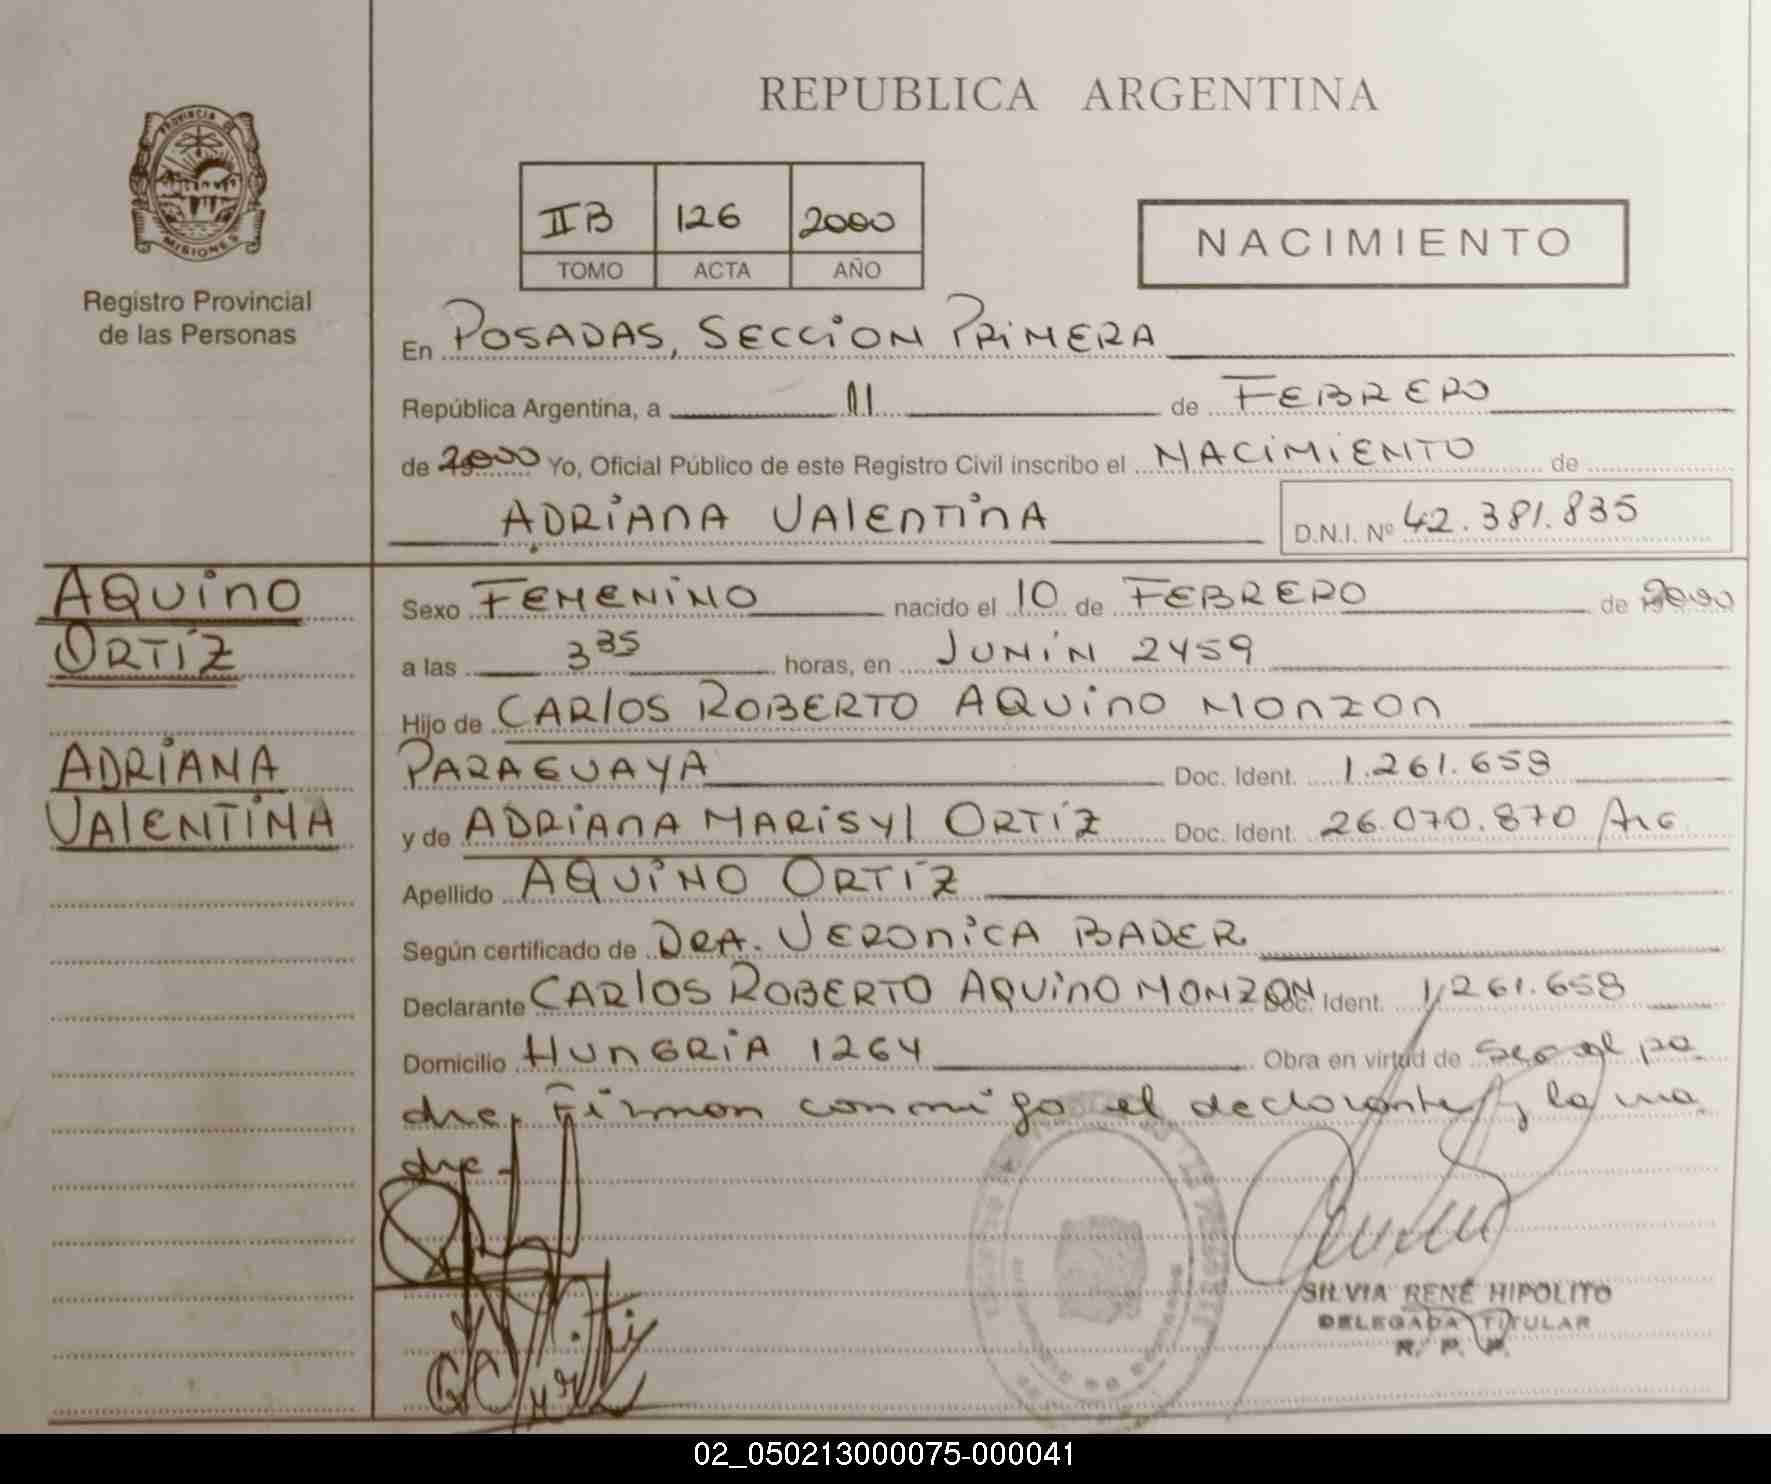 REPUBLICA ARGENTINA
PROVINCIA DE
MISIONES
Registro Provincial
de las Personas
IIB 126 2000
TOMO ACTA AÑO
NACIMIENTO
En POSADAS, SECCION PRIMERA
República Argentina, a 11 de FEBRERO
de 2000 Yo, Oficial Público de este Registro Civil inscribo el NACIMIENTO de
ADRIANA VALENTINA D.N.I. Nº 42.381.835
AQUINO
ORTIZ
ADRIANA
VALENTINA
Sexo FEMENINO nacido el 10 de FEBRERO de 2000
a las 3 35 horas, en JUNIN 2459
Hijo de CARLOS ROBERTO AQUINO MONZON
PARAGUAYA Doc. Ident. 1.261.658
y de ADRIANA MARISYL ORTIZ Doc. Ident. 26.070.870 Arg
Apellido AQUINO ORTIZ
Según certificado de DRA. VERONICA BADER
Declarante CARLOS ROBERTO AQUINO MONZON Doc. Ident. 1.261.658
Domicilio HUNGRIA 1264 Obra en virtud de ser el pa
dre. Firman conmigo el declarante y la ma
dre.-
SILVIA RENÉ HIPOLITO
DELEGADA TITULAR
R. P. P.
02_050213000075-000041